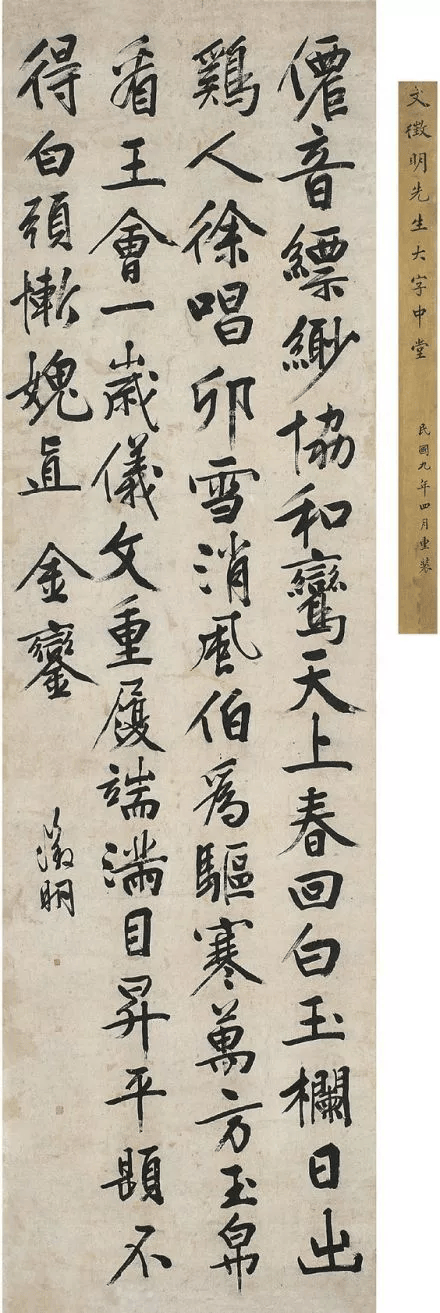 文徵明先生大字中堂
民國九年四月重裝
僊音縹緲協和鸞天上春回白玉欄日出
鷄人徐唱卯雪消風伯爲驅寒萬方玉帛
看王會一歲儀文重履端滿目昇平題不
得白頭慚媿直 金鑾
徵明